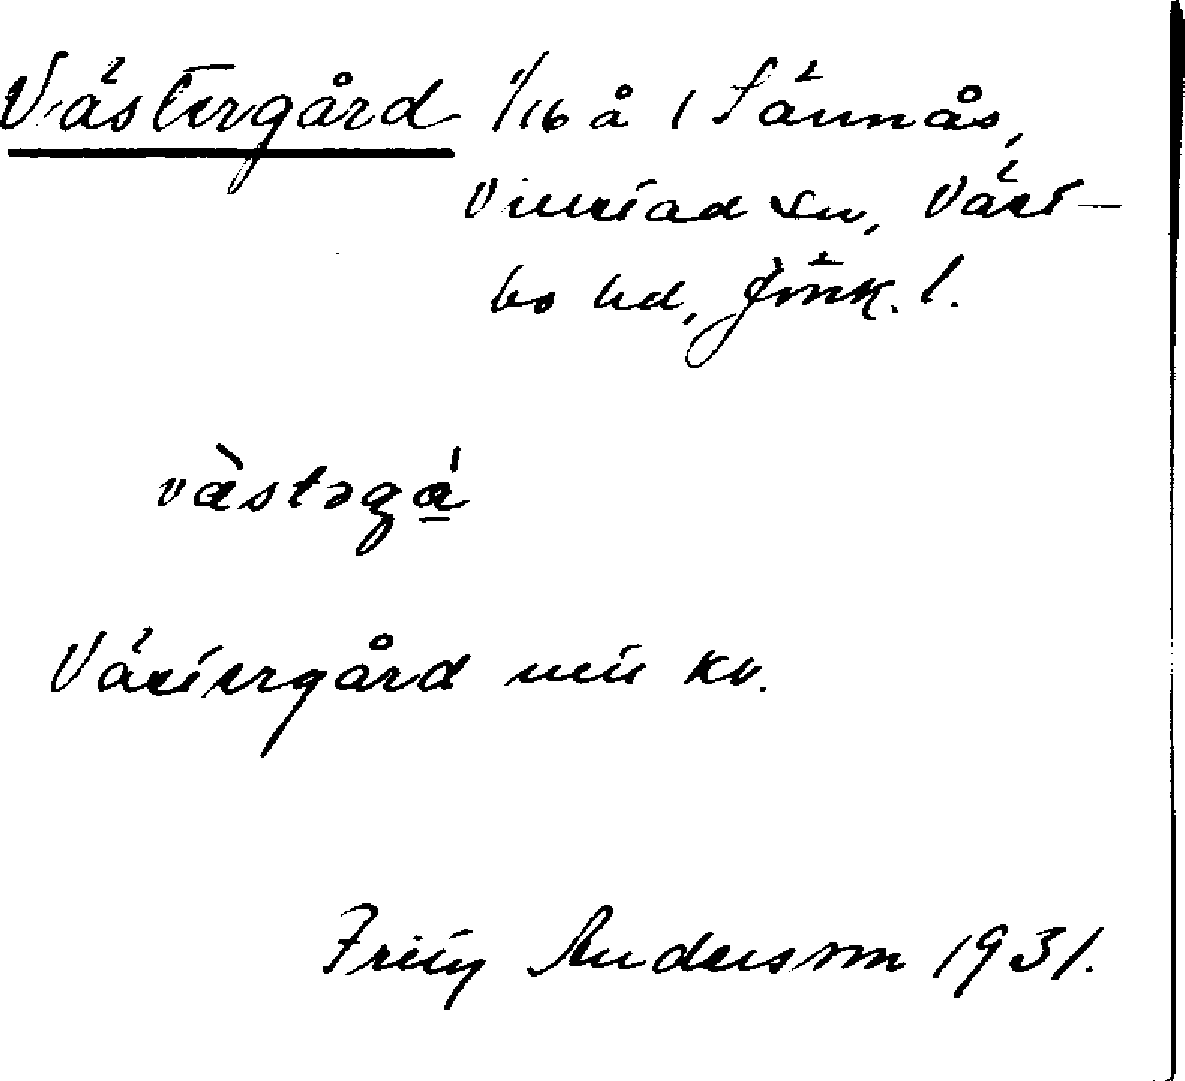 Västergård 1/16 å 1 Sännås,
Villstad sn, Väst-
bo hd, Jönk. l.
vàstəgá
Västergård utt kv.
Fritz Andersson 1931.